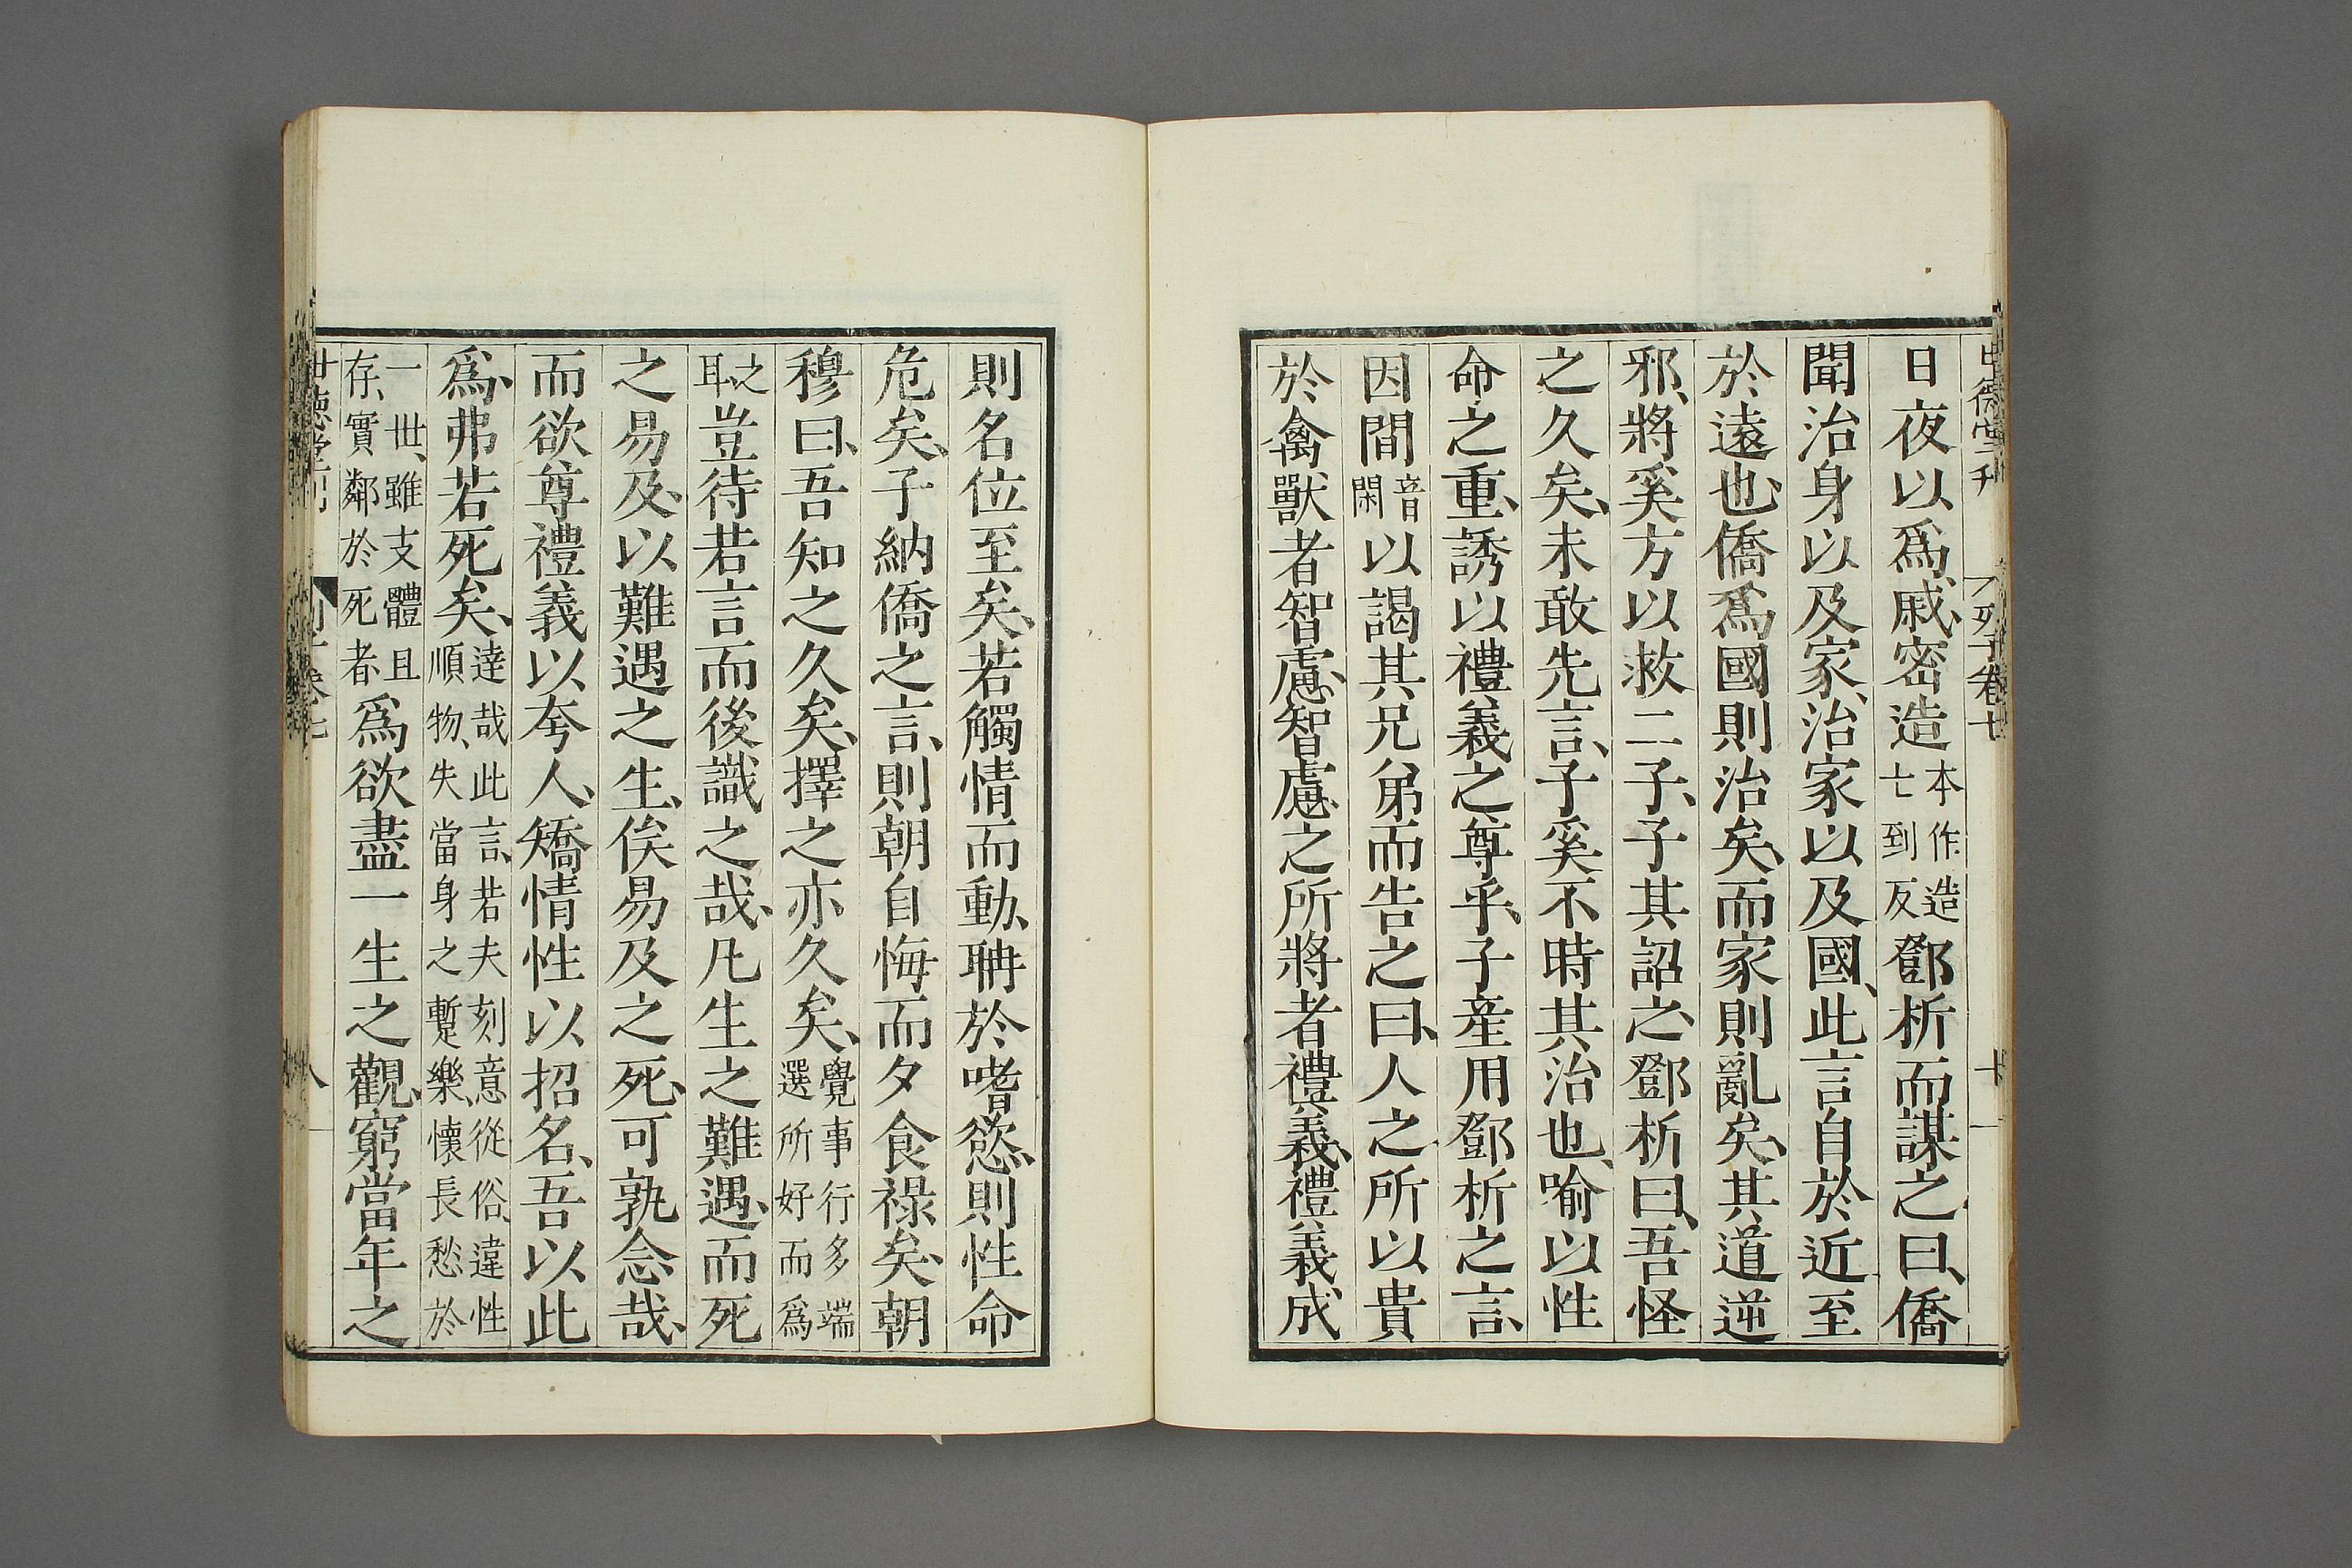 世德堂刊
列子卷七
日夜以爲戚、密造本作造亡到反鄧析而謀之曰、僑
聞治身以及家、治家以及國、此言自於近至
於遠也、僑爲國則治矣、而家則亂矣、其道逆
邪、將奚方以救二子、子其詔之、鄧析曰、吾怪
之久矣、未敢先言、子奚不時其治也、喻以性
命之重、誘以禮義之尊乎、子產用鄧析之言、
因間音閑以謁其兄弟而告之曰、人之所以貴
於禽獸者智慮、智慮之所將者禮義、禮義成、
則名位至矣、若觸情而動、聃於嗜慾、則性命
危矣、子納僑之言、則朝自悔而夕食祿矣、朝
穆曰、吾知之久矣、擇之亦久矣、覺事行多端選所好而爲
之耳豈待若言而後識之哉、凡生之難遇、而死
之易及、以難遇之生、俟易及之死、可孰念哉、
而欲尊禮義以夸人、矯情性以招名、吾以此
爲、弗若死矣、達哉此言、若夫刻意從俗、違性順物、失當身之暫樂、懷長愁於
一世、雖支體且存、實鄰於死者、爲欲盡一生之觀、窮當年之
世德堂刊
卷七
八